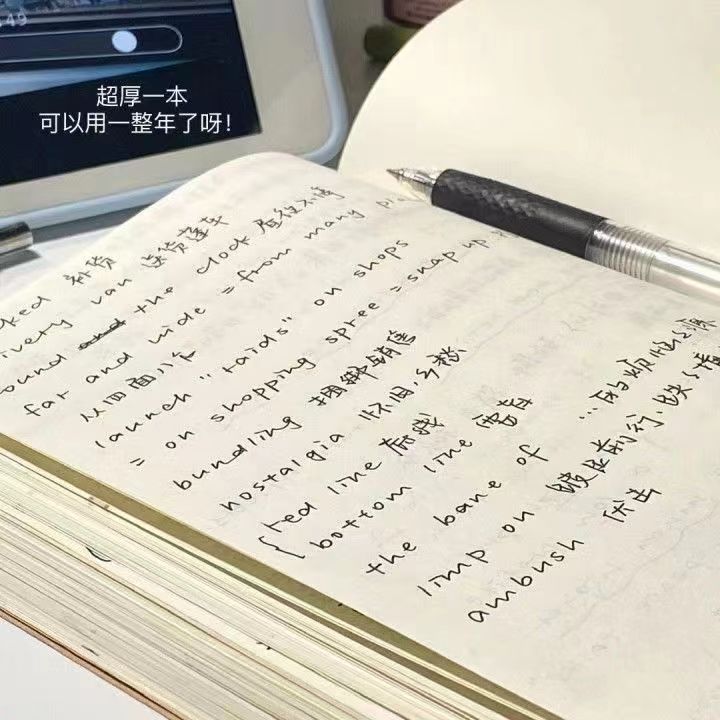 549
超厚一本
可以用一整年了呀!
ked 补货
ivery van 送货篷车
ound the clock 昼夜不停
far and wide = from many
从四面八方
launch "raids" on shops
= on shopping spree = snap up
bundling 捆绑销售
nostalgia 怀旧,乡愁
{ red line 底线
bottom line
the bane of …的烦恼之源
limp on 跛足前行,
ambush 伏击